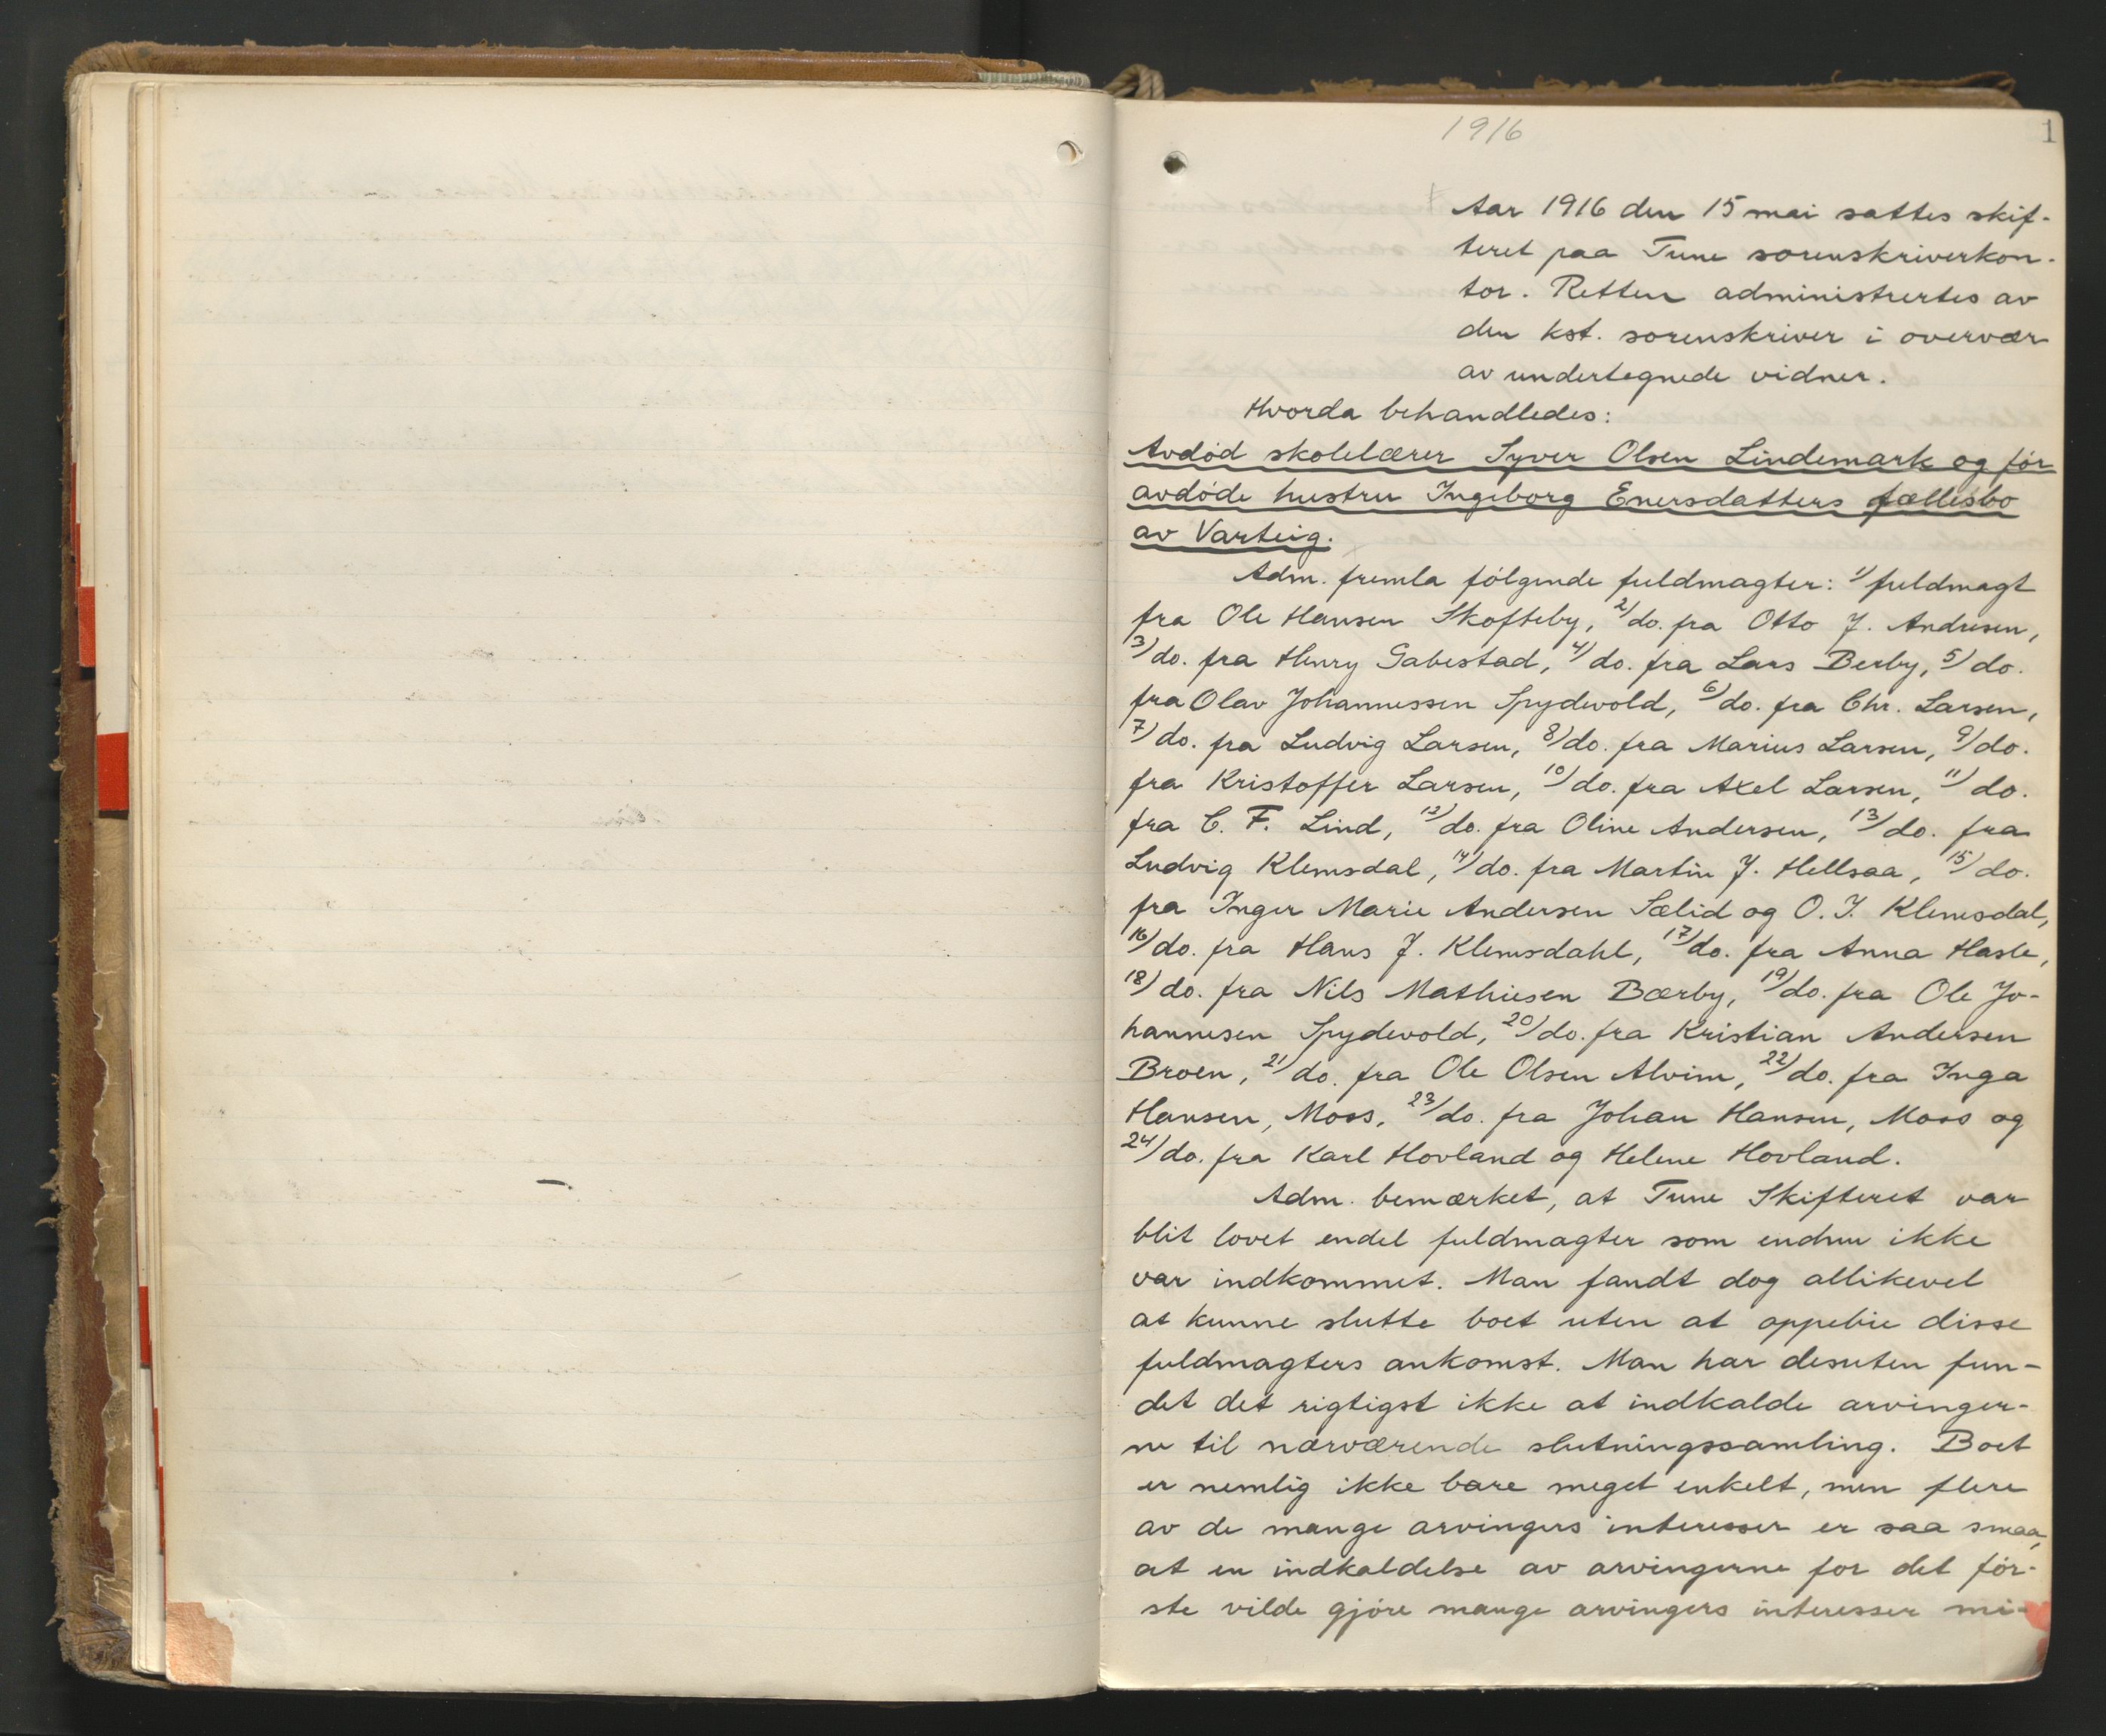 1916
1
Aar 1916 den 15 mai sattes skif-
teret paa Tune sorenskriverkon-
tor. Retten administrertes av
den kst. sorenskriver i overvær
av undertegnede vidner.
Hvorda behandledes:
Avdød skolelærer Syver Olsen Lindemark og før
avdøde hustru Ingeborg Enersdatters fællesbo
av Varteig.
Adm. fremla følgende fuldmagter: 1/ fuldmagt
fra Ole Hansen Skofteby, 2/ do. fra Otto J. Andresen,
3/ do. fra Henry Gabestad, 4/ do. fra Lars Berby, 5/ do.
fra Olav Johannessen Spydevold, 6/ do. fra Chr. Larsen,
7/ do. fra Ludvig Larsen, 8/ do. fra Marius Larsen, 9/ do.
fra Kristoffer Larsen, 10/ do. fra Axel Larsen, 11/ do.
fra C. F. Lind, 12/ do. fra Oline Andersen, 13/ do. fra
Ludvig Klemsdal, 14/ do. fra Martin J. Hellsaa, 15/ do.
fra Inger Marie Andersen Sælid og O. J. Klemsdal,
16/ do. fra Hans J. Klemsdahl, 17/ do. fra Anna Hasle,
18/ do. fra Nils Mathiesen Bærby, 19/ do. fra Ole Jo-
hannesen Spydevold, 20/ do. fra Kristian Andersen
Broen, 21/ do. fra Ole Olsen Alvim, 22/ do. fra Inga
Hansen, Moss, 23/ do. fra Johan Hansen, Moss og
24/ do. fra Karl Hovland og Helene Hovland.
Adm. bemærket, at Tune Skifteret var
blit lovet endel fuldmagter som endnu ikke
var indkommet. Man fandt dog allikevel
at kunne slutte boet uten at oppebie disse
fuldmagters ankomst. Man har desuten fun-
det det rigtigst ikke at indkalde arvinger-
ne til nærværende slutningssamling. Boet
er nemlig ikke bare meget enkelt, men flere
av de mange arvingers interesser er saa smaa,
at en indkaldelse av arvingerne for det før-
ste vilde gjøre mange arvingers interesser mi-